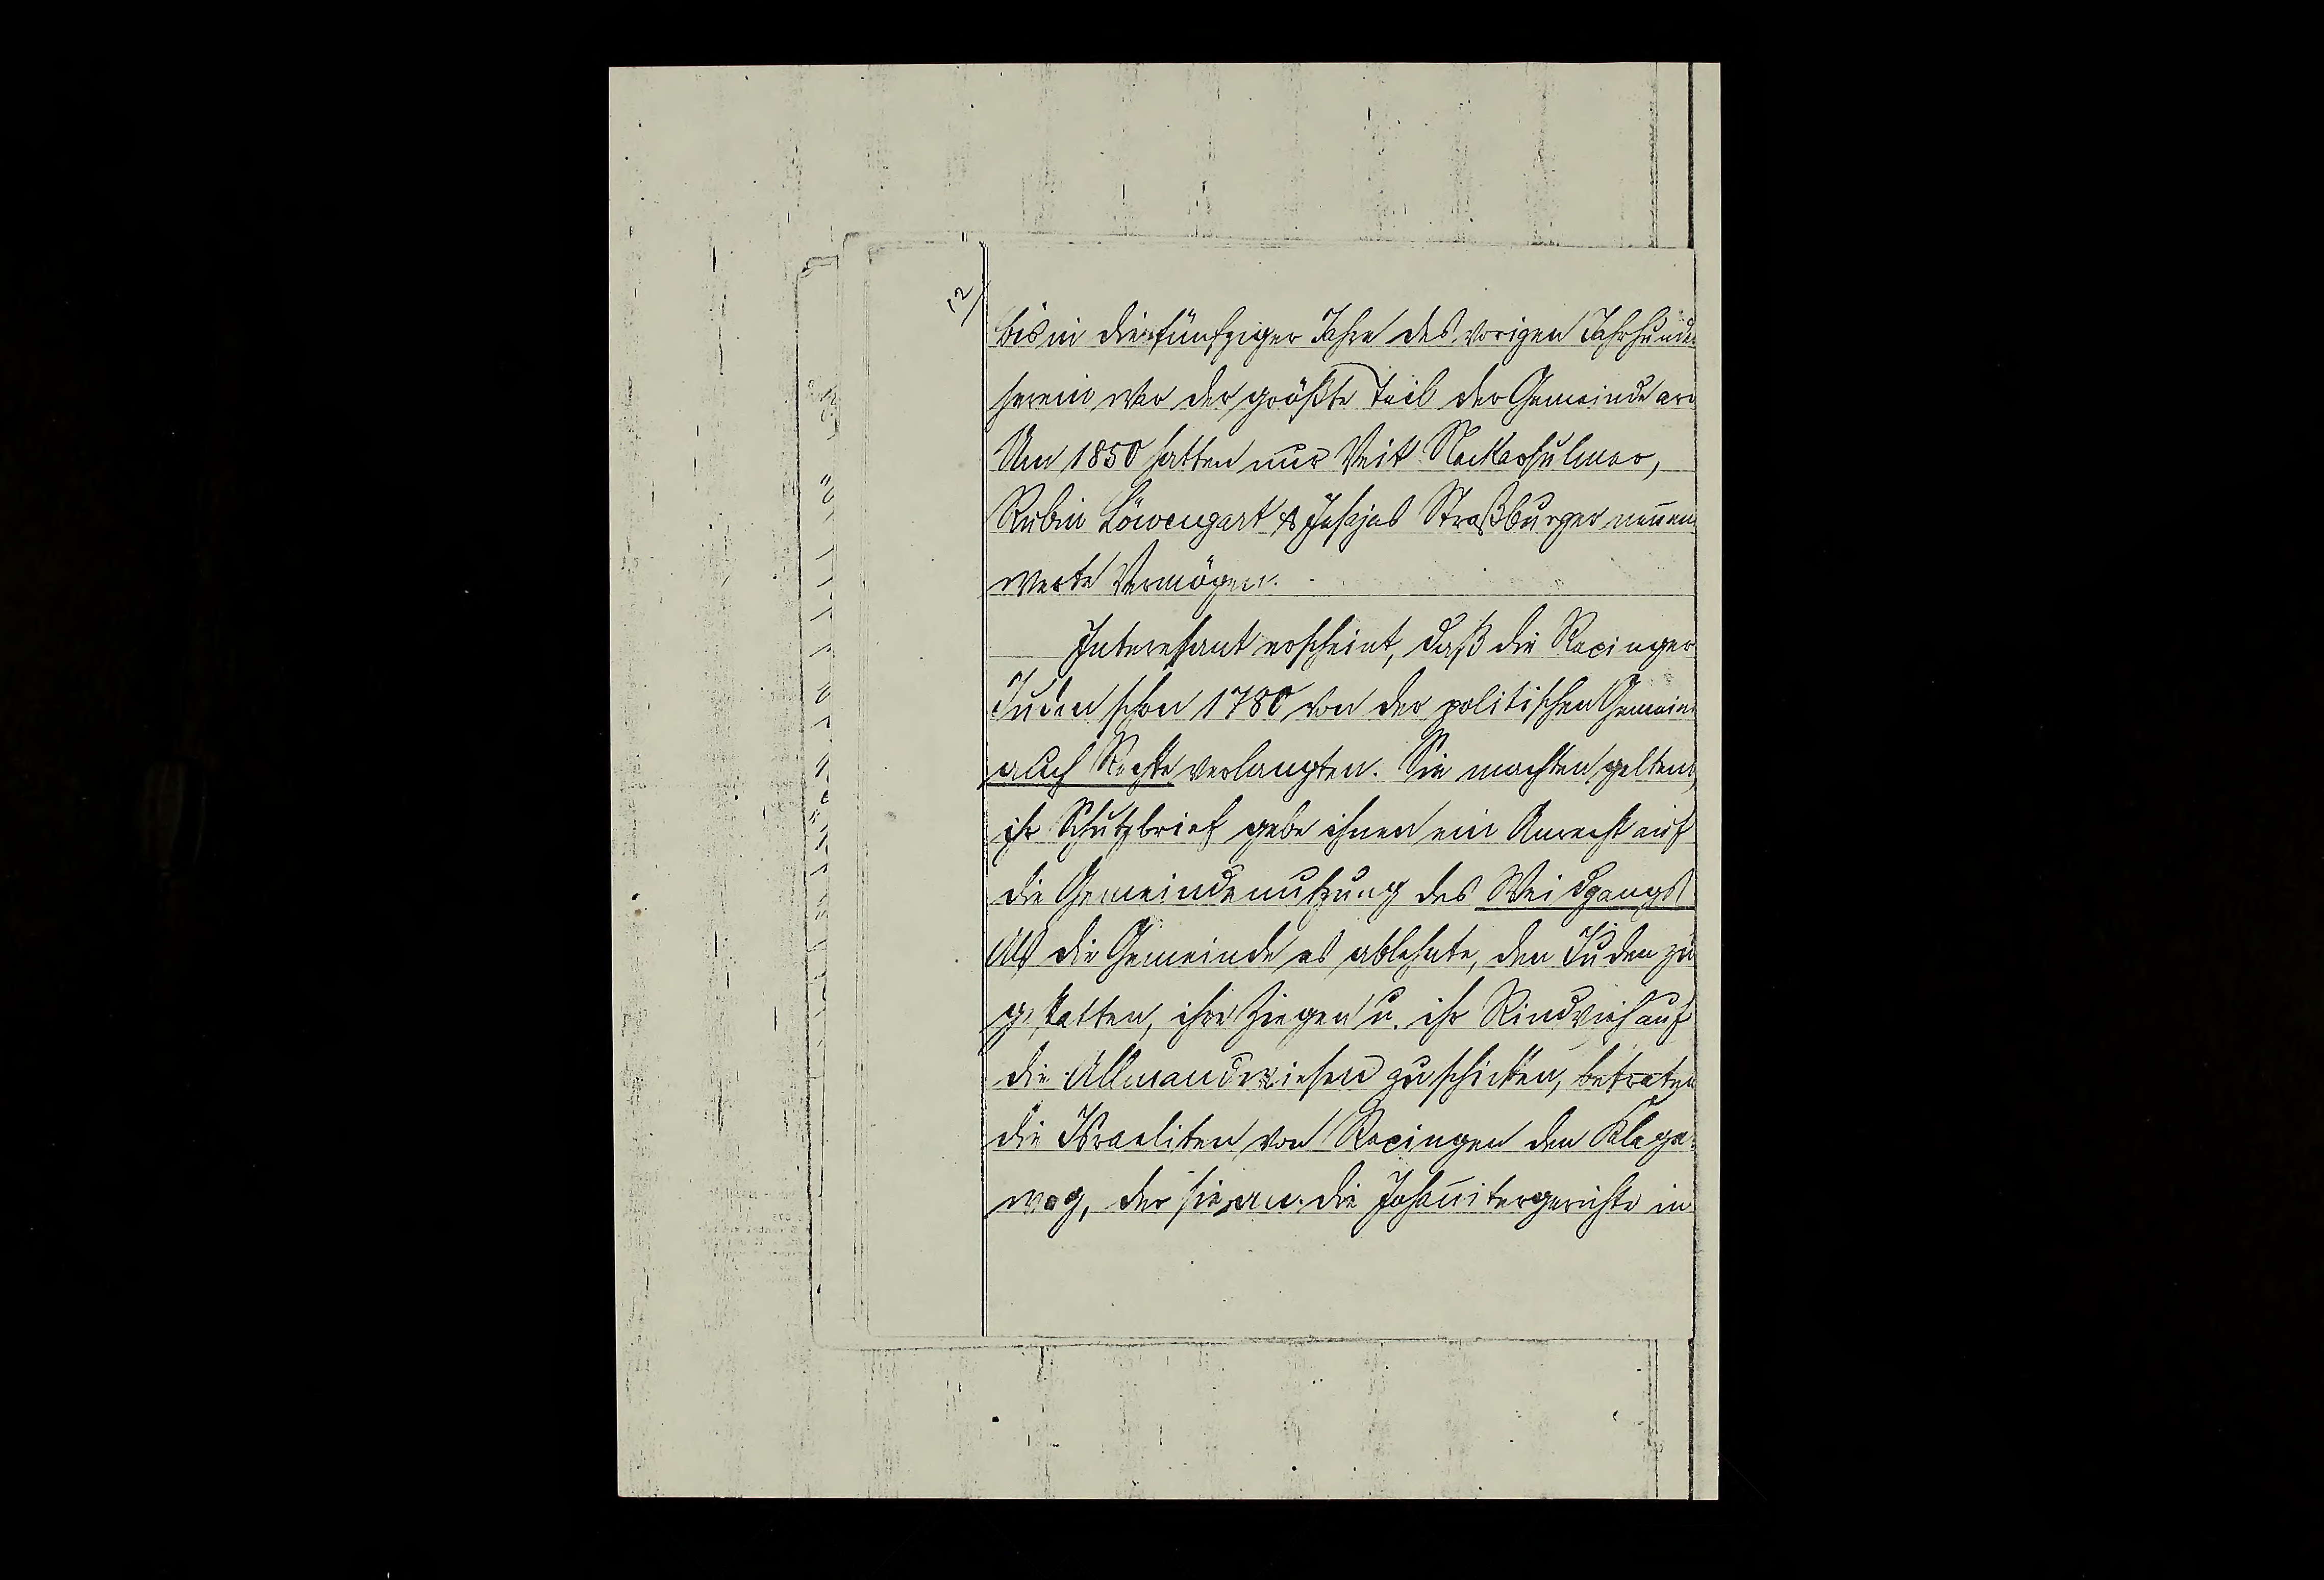 12/
bis in die fünfziger Jahre des vorigen Jahrhunde
herein war der größte Teil der Gemeinde arm
Um 1850 hatten nur Veit Neckarsulmer,
Rubin Löwengart & Jesajas Straßburger nennens
werte Vermögen.
Interessant erscheint, daß die Rexinger
Juden schon 1780 von der politischen Gemein
auch Rechte verlangten. Sie machten geltend,
ihr Schutzbrief gebe ihnen ein Anrecht auf
die Gemeindenutzung des Weidgangs
Als die Gemeinde es ablehnte, den Juden zu
gestatten, ihre Ziegen u. ihr Rindvieh auf
die Allmandwiesen zu schicken, betraten
die Israeliten von Rexingen den Klage-
weg, der sie an die Johannitergerichte in